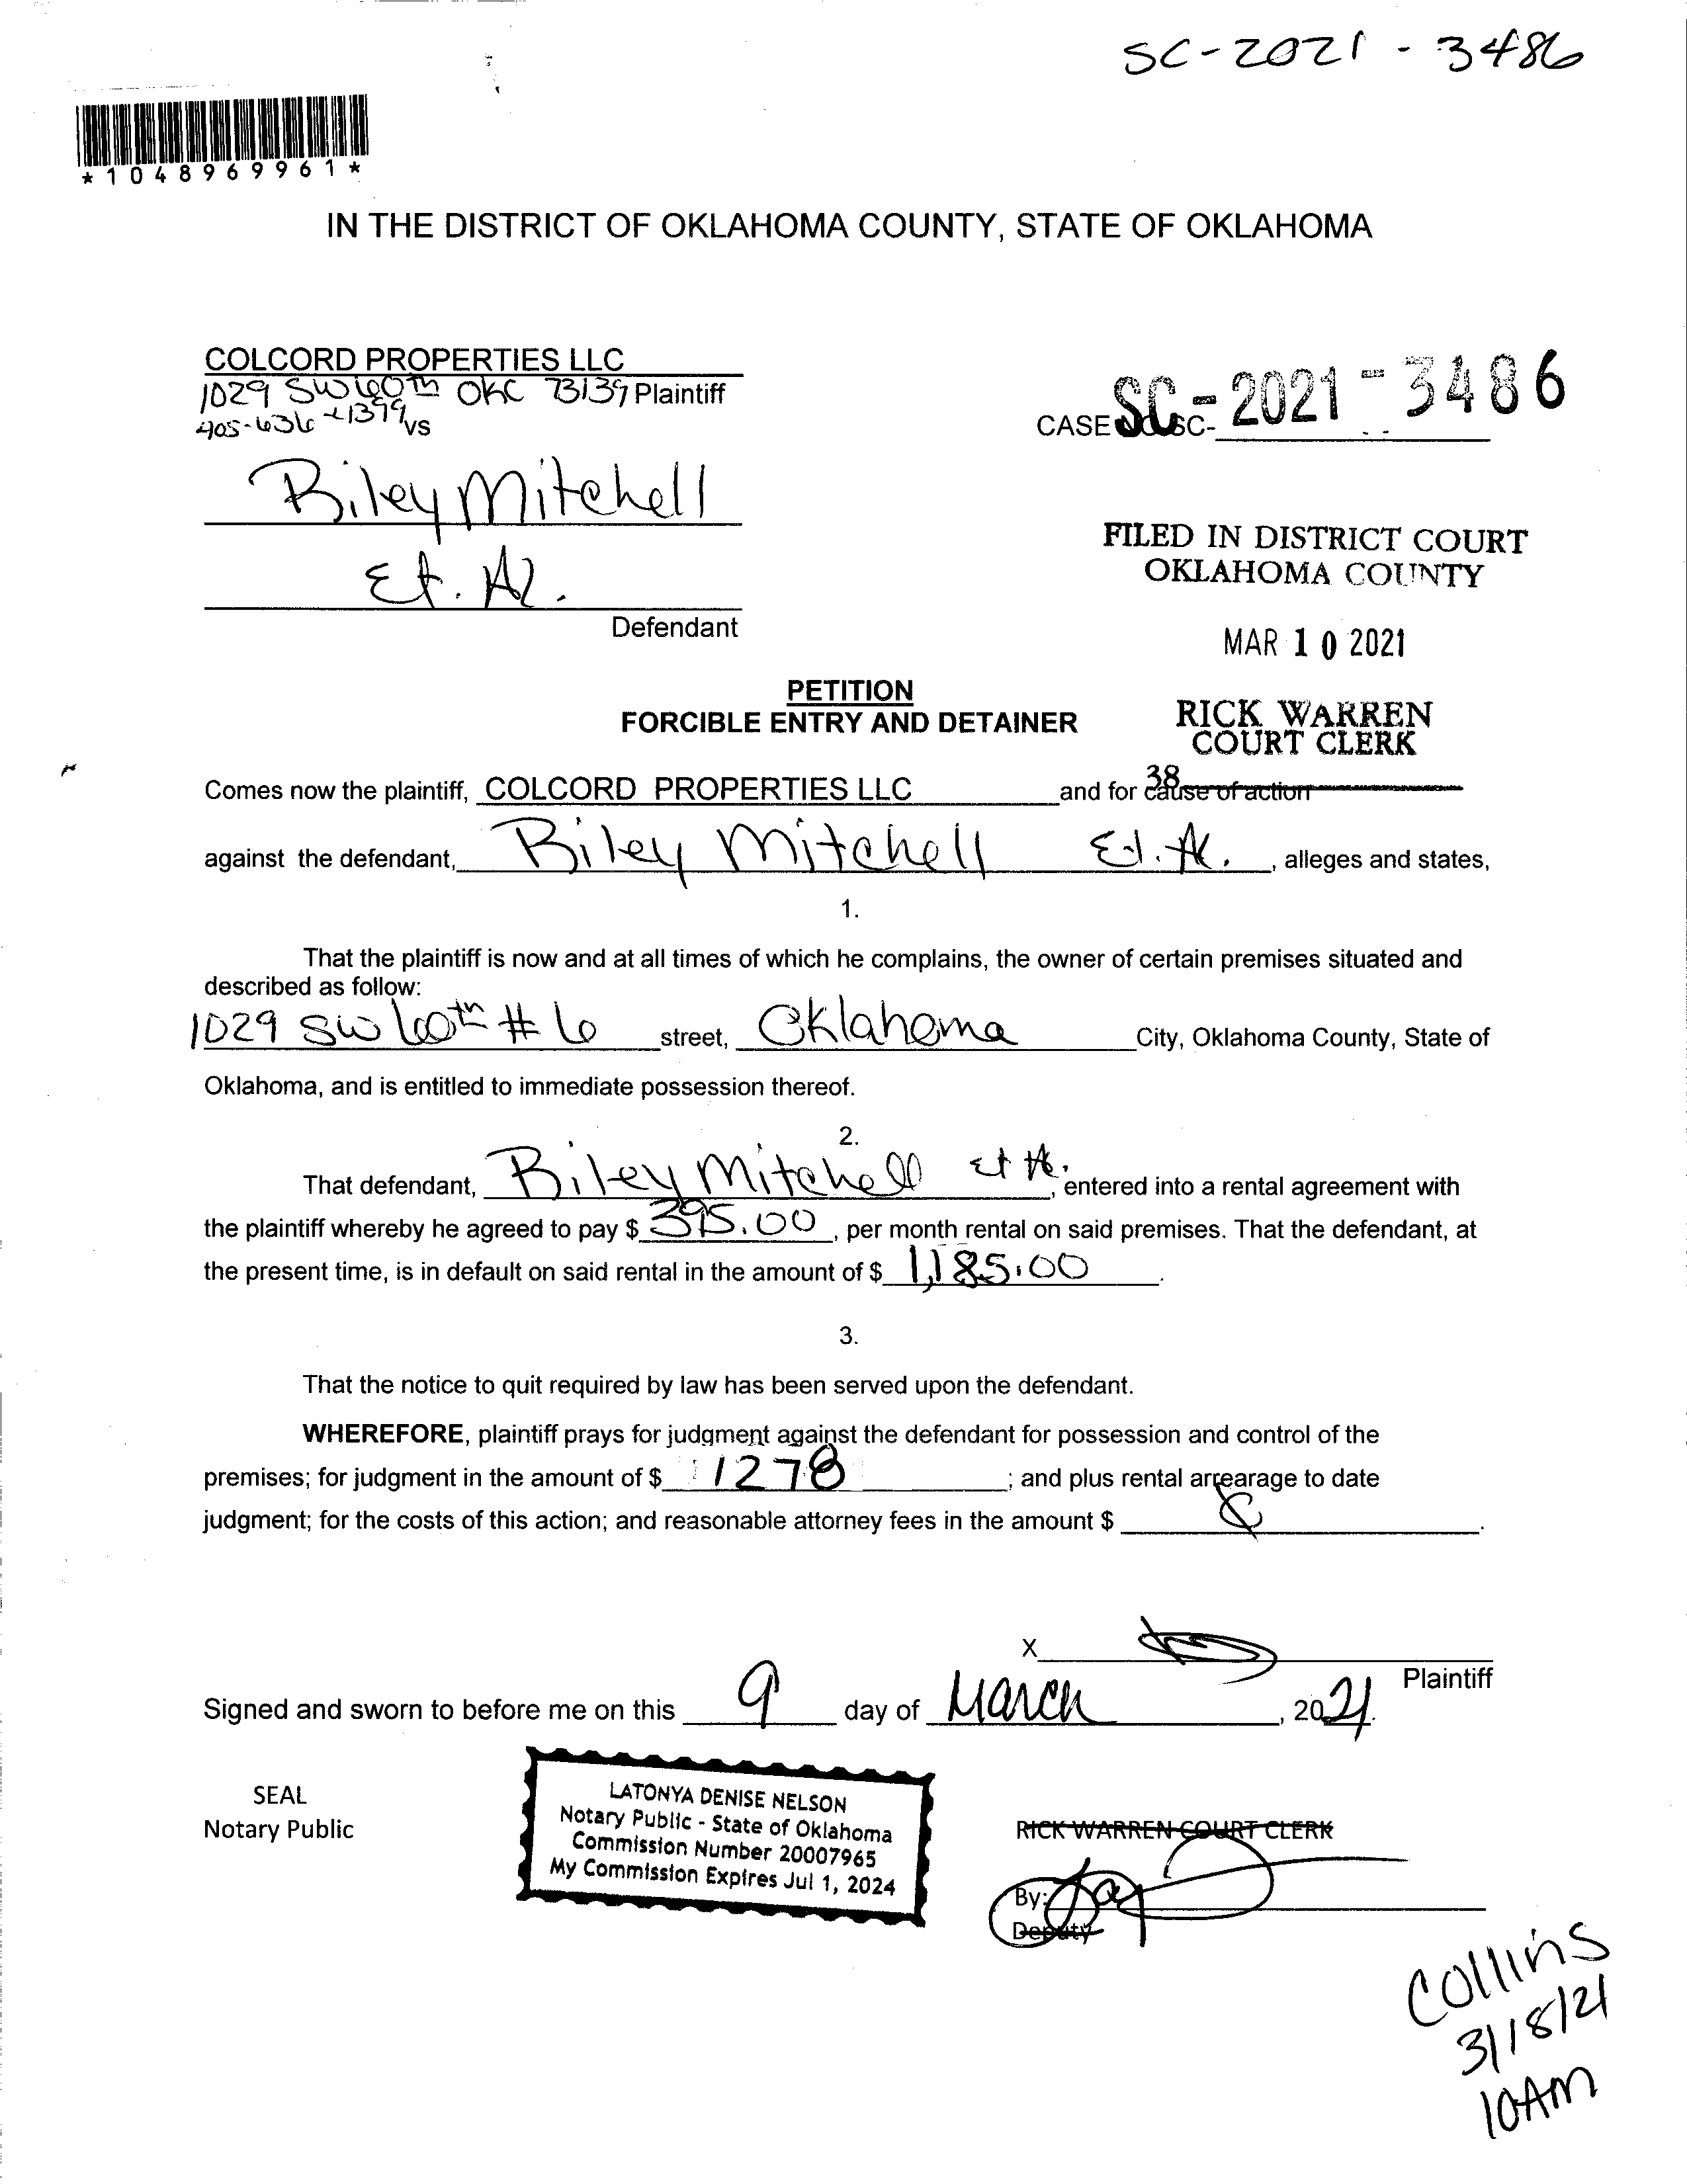 SC-2021-3486
*1048969961*
IN THE DISTRICT OF OKLAHOMA COUNTY, STATE OF OKLAHOMA
COLCORD PROPERTIES LLC
1029 SW 60th OKC 73139 Plaintiff
405-636-1399 vs
CASE SC- SC-2021-3486
Riley Mitchell
Et. Al.
Defendant
FILED IN DISTRICT COURT
OKLAHOMA COUNTY
MAR 10 2021
RICK WARREN
COURT CLERK
38
PETITION
FORCIBLE ENTRY AND DETAINER
Comes now the plaintiff, COLCORD PROPERTIES LLC and for cause of action
against the defendant, Riley Mitchell Et. Al. , alleges and states,
1.
That the plaintiff is now and at all times of which he complains, the owner of certain premises situated and
described as follow:
1029 SW 60th #6 street, Oklahoma City, Oklahoma County, State of
Oklahoma, and is entitled to immediate possession thereof.
2.
That defendant, Riley Mitchell et Al. , entered into a rental agreement with
the plaintiff whereby he agreed to pay $ 395.00 , per month rental on said premises. That the defendant, at
the present time, is in default on said rental in the amount of $ 1,185.00 .
3.
That the notice to quit required by law has been served upon the defendant.
WHEREFORE, plaintiff prays for judgment against the defendant for possession and control of the
premises; for judgment in the amount of $ 1278 ; and plus rental arrearage to date
judgment; for the costs of this action; and reasonable attorney fees in the amount $ .
X
Plaintiff
Signed and sworn to before me on this 9 day of March , 2021.
SEAL
Notary Public
LATONYA DENISE NELSON
Notary Public - State of Oklahoma
Commission Number 20007965
My Commission Expires Jul 1, 2024
RICK WARREN COURT CLERK
By:
Deputy
Collins
3/18/21
10AM